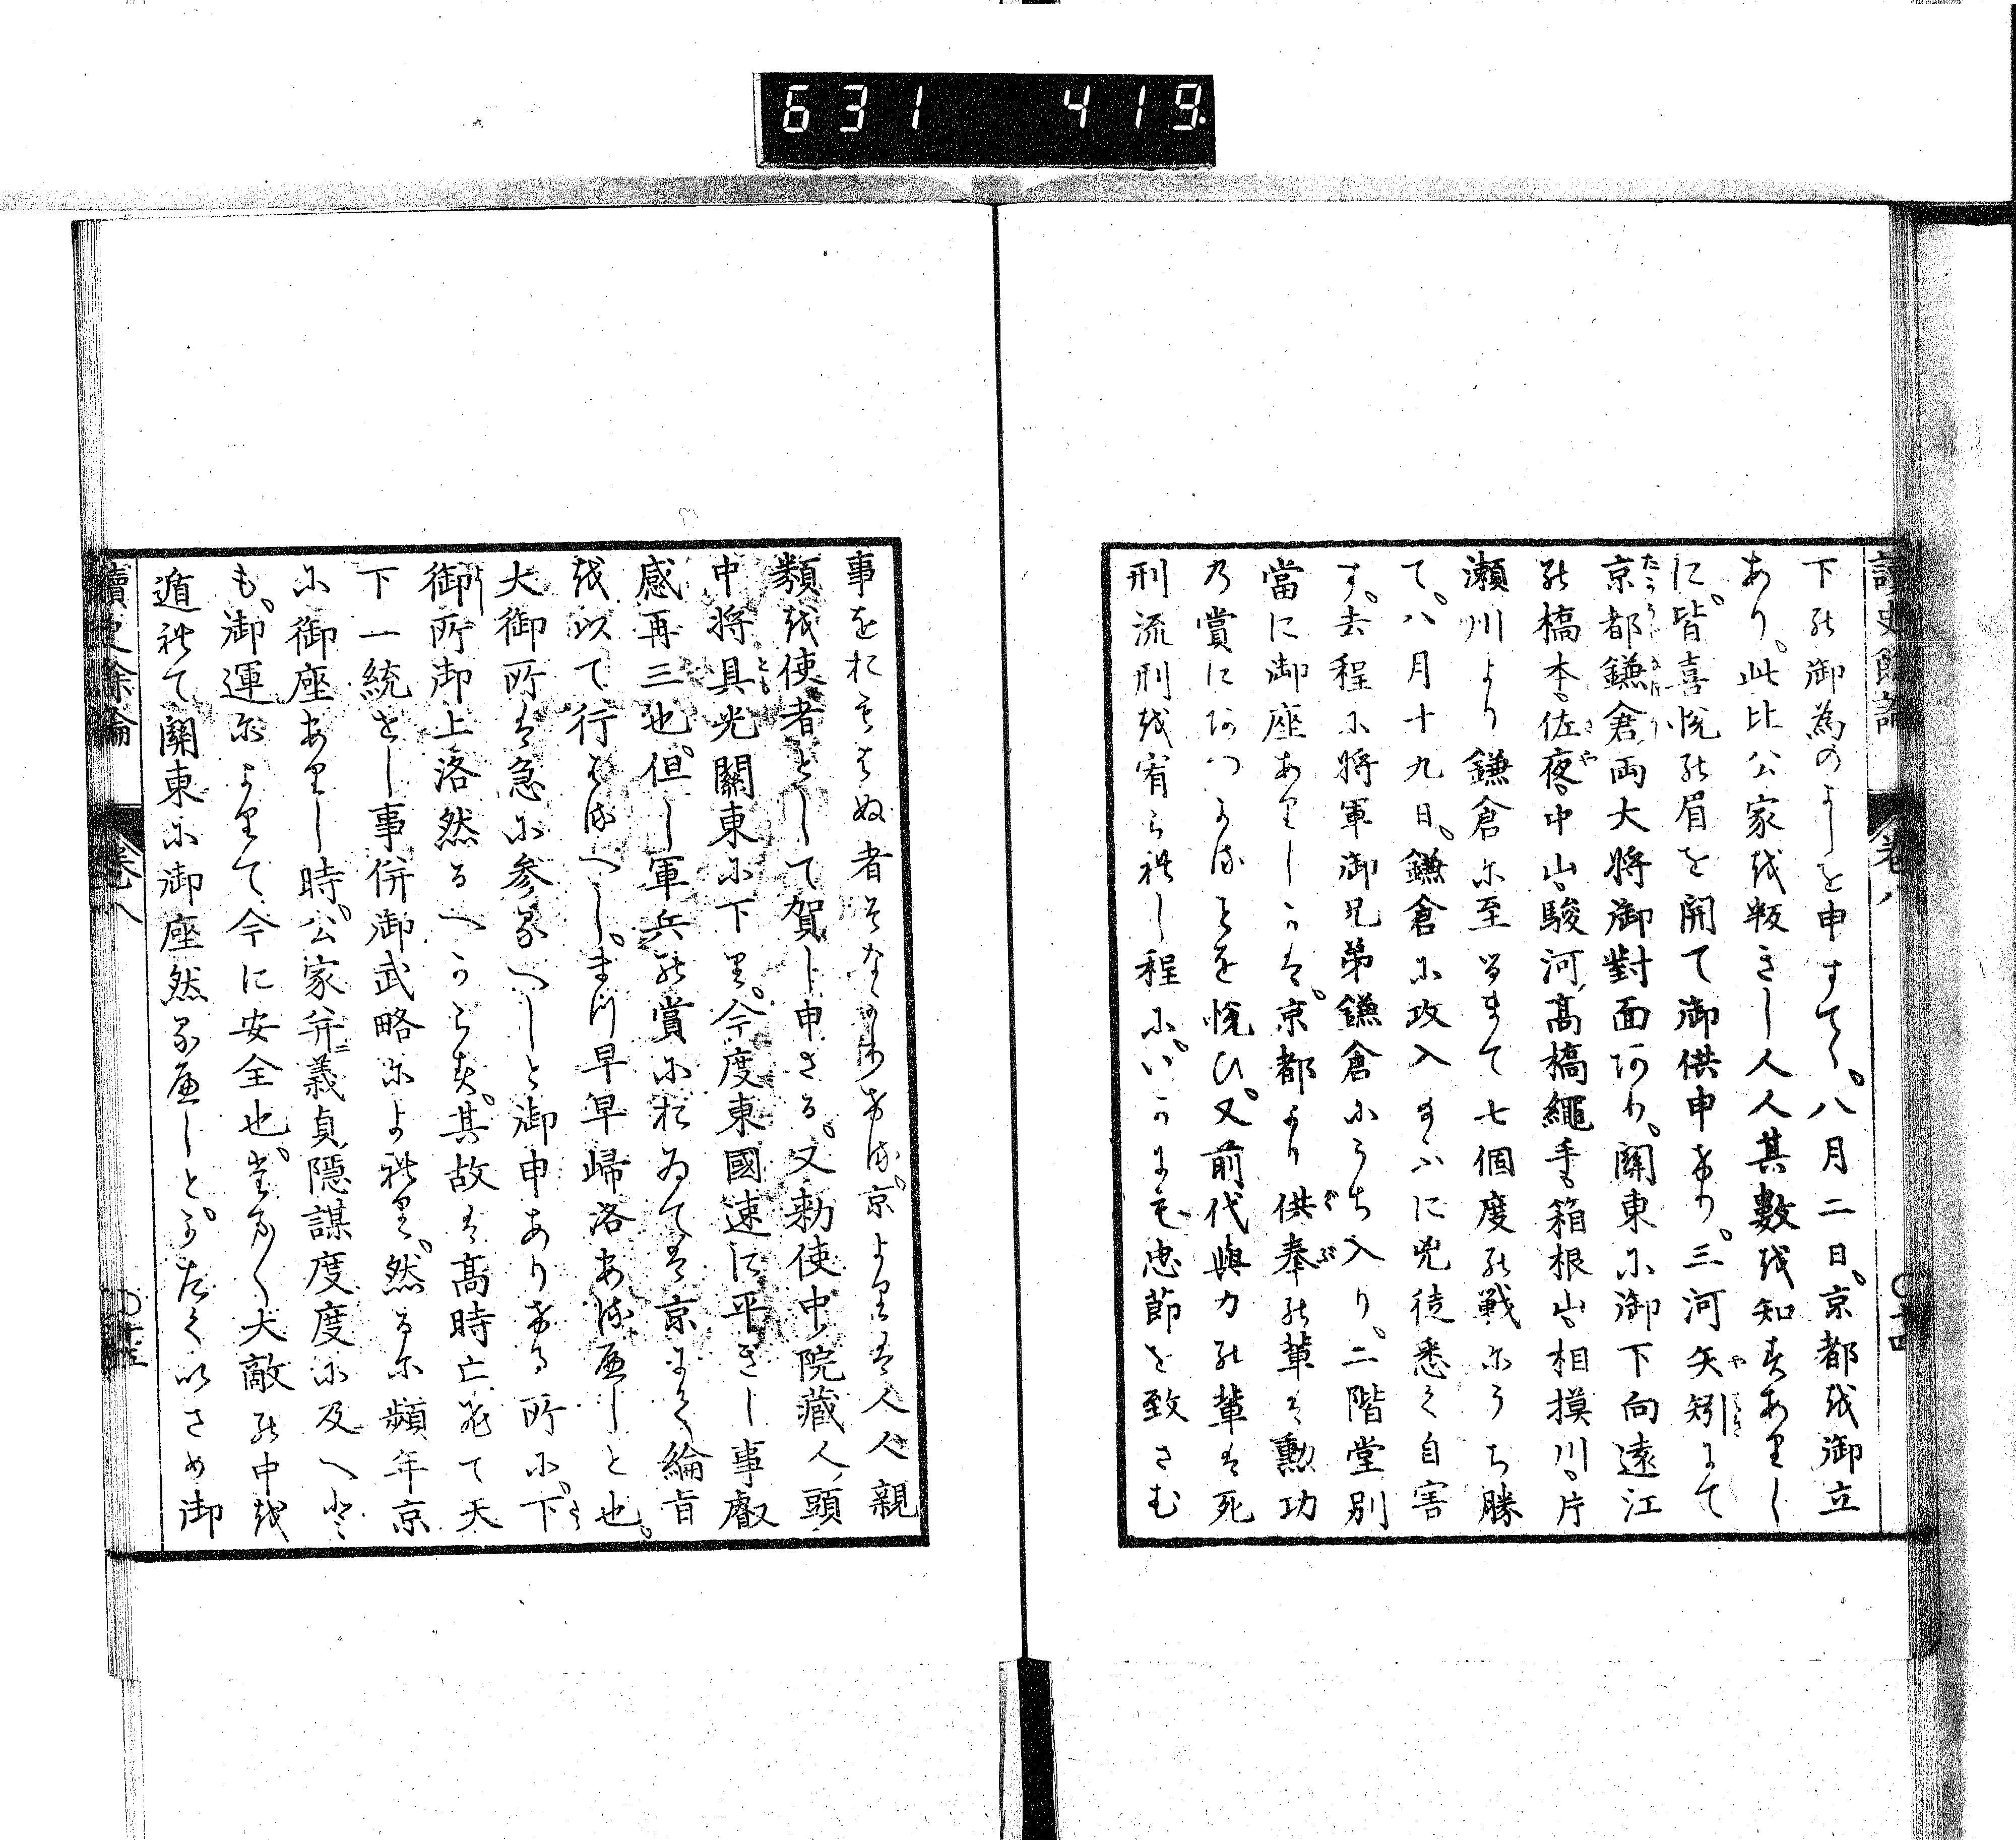 631 419
讀史餘論 卷八 〇十四
下の御為のよしを申すてく。八月二日。京都を御立
あり。此比公家を叛きし人人其數を知すありし
に。皆喜悦の眉を開て御供申けり。三河矢矧にて
京都鎌倉両大将御對面あり。關東に御下向遠江
の橋本、佐夜中山、駿河、高橋繩手、箱根山、相摸川、片
瀬川より鎌倉に至るまて七個度の戦にうち勝
て。八月十九日。鎌倉に攻入給ふに兇徒悉く自害
す。去程に将軍御兄弟鎌倉にうち入り。二階堂別
當に御座ありしかは。京都より供奉の輩は勲功
乃賞にあつかることを悦ひ。又前代與力の輩は死
刑流刑を宥られし程に。いかにも忠節を致さむ
事をおもはぬ者そなかりける。京よりは人人親
類を使者として賀し申さる。又勅使中院藏人頭
中将具光關東に下り。今度東國速に平きし事叡
感再三也。但し軍兵の賞におゐては京にて綸旨
を以て行はるへし。まつ早早歸洛あるへしと也。
大御所は急に参るへしと御申ありける所に。下
御所御上洛然るへからす。其故は高時亡ひて天
下一統とし事併御武略によれり。然るに頻年京
に御座ありし時。公家并義貞隠謀度度に及へと
も。御運によりて今に安全也。たまたま大敵の中を
遁れて關東に御座然るへしと。かたくいさめ御
讀史餘論 卷八 〇十五